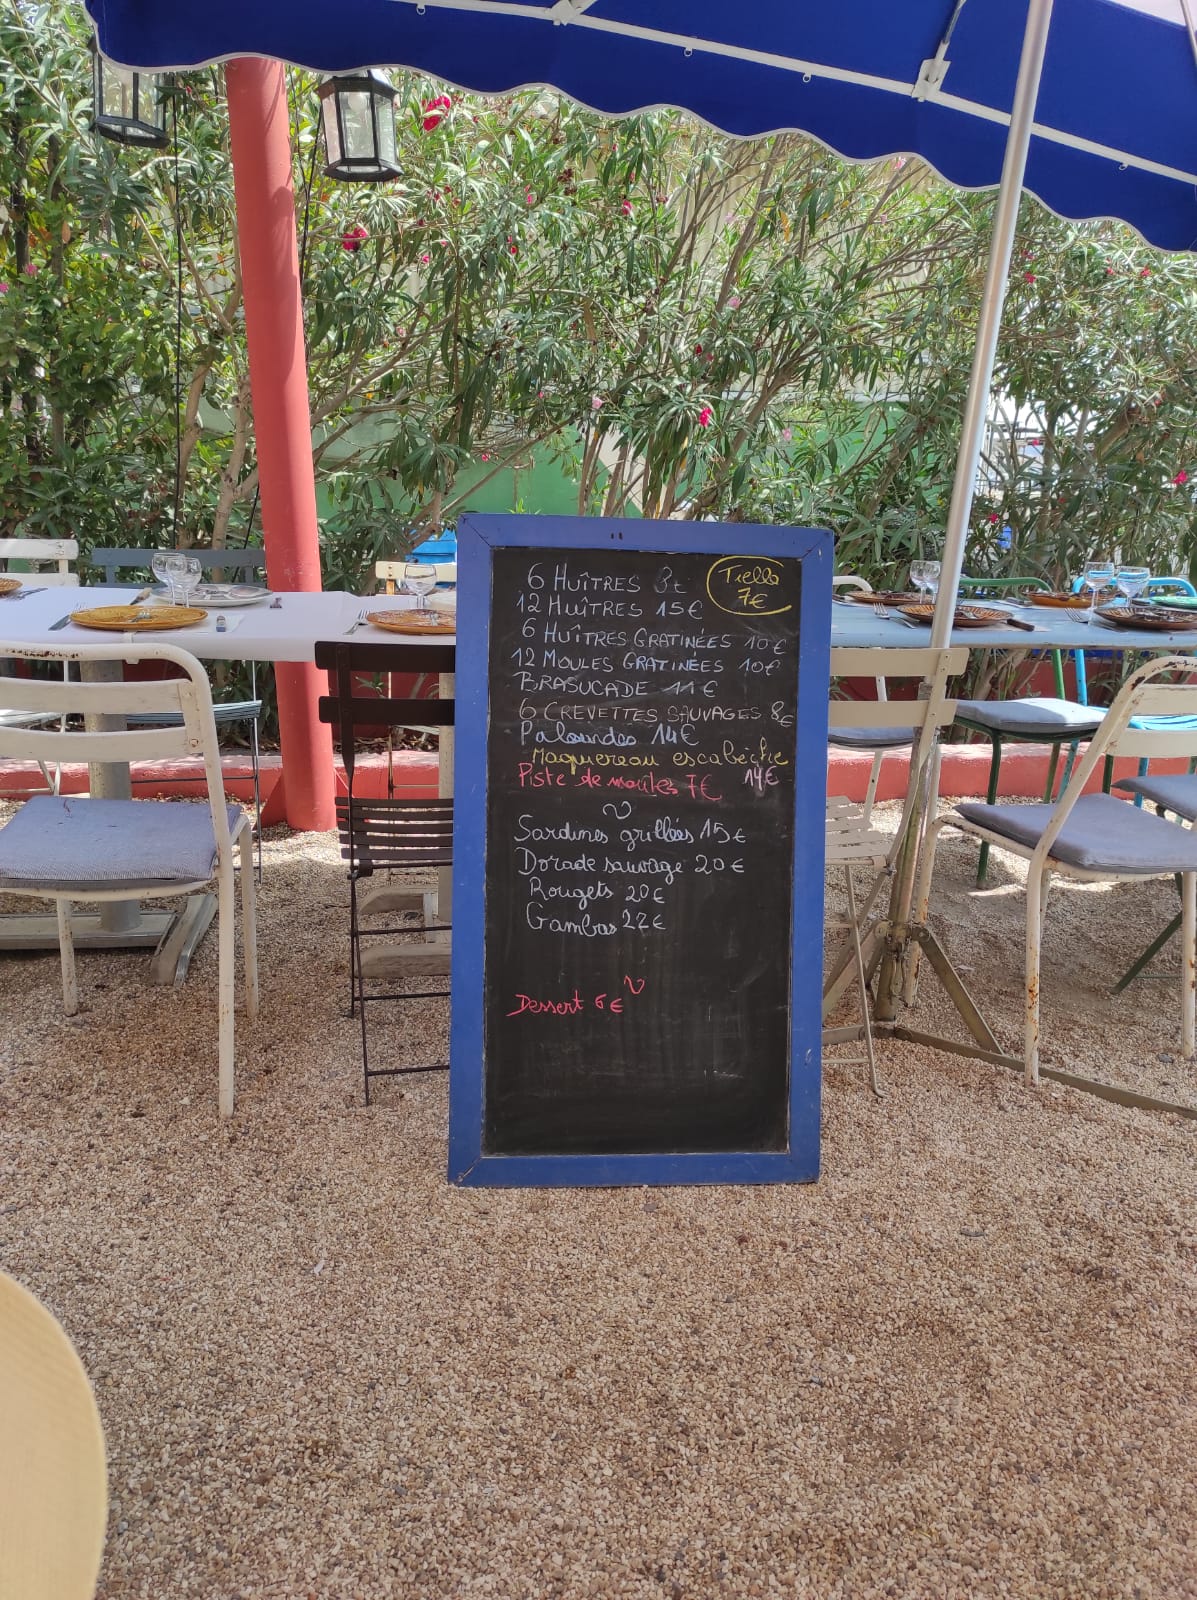 6 HUÎTRES 8€
Tielle
7€
12 HUÎTRES 15€
6 HUÎTRES GRATINÉES 10€
12 MOULES GRATINÉES 10€
BRASUCADE 11€
6 CREVETTES SAUVAGES 8€
Palourdes 14€
Maquereau escabèche
14€
Piste de moules 7€
Sardines grillées 15€
Dorade sauvage 20€
Rougets 20€
Gambas 22€
Dessert 6€